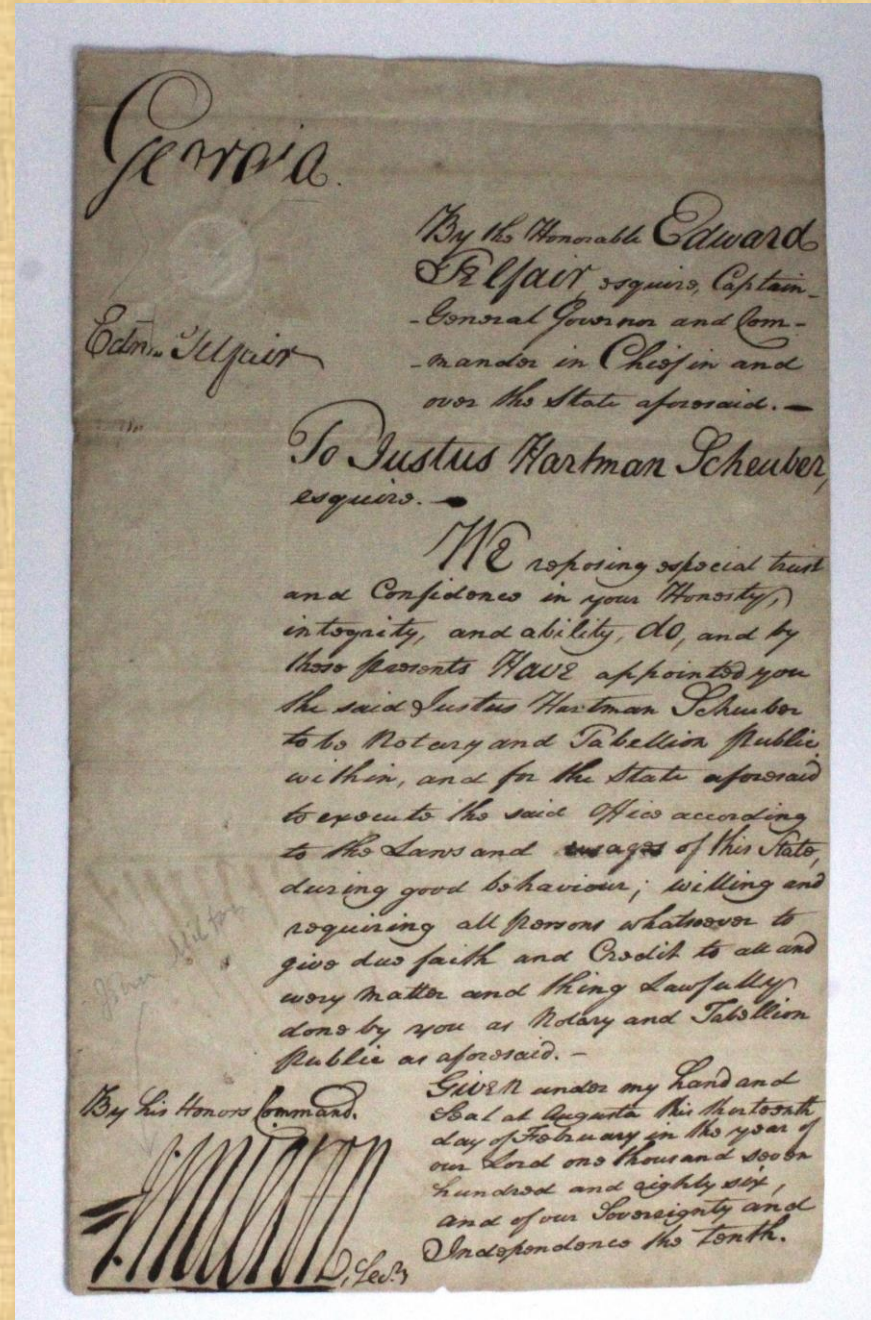 Georgia.
By the Honorable Edward
Telfair, esquire, Captain-
-General Governor and Com-
-mander in Chief in and
over the State aforesaid.—
Edw. Telfair
To Justus Hartman Scheuber,
esquire.—
WE reposing especial trust
and Confidence in your Honesty,
integrity, and ability, do, and by
these presents Have appointed you
the said Justus Hartman Scheuber
to be Notary and Tabellion Public
within, and for the State aforesaid
to execute the said Office according
to the Laws and usages of this State,
during good behaviour; willing and
requiring all Persons whatsoever to
give due faith and Credit to all and
every matter and thing Lawfully
done by you as Notary and Tabellion
Public as aforesaid.—
John Milton
Given under my hand and
Seal at Augusta this thirteenth
day of February in the year of
our Lord one thousand seven
hundred and eighty six,
and of our Sovereignty and
Independence the tenth.
By his Honors Command.
J. Milton, Secy